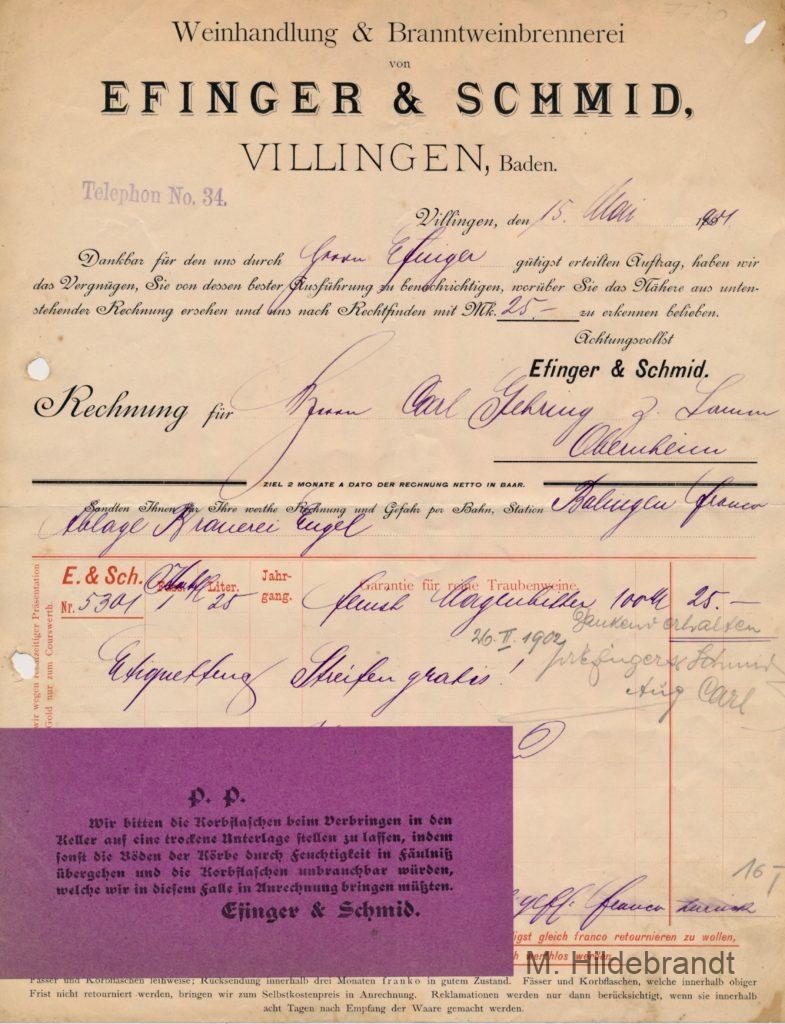 Weinhandlung & Branntweinbrennerei
von
EFINGER & SCHMID,
VILLINGEN, Baden.
Telephon No. 34.
Villingen, den 15. Mai 1901
Dankbar für den uns durch Herrn Efinger gütigst erteilten Auftrag, haben wir
das Vergnügen, Sie von dessen bester Ausführung zu benachrichtigen, worüber Sie das Nähere aus unten-
stehender Rechnung ersehen und uns nach Rechtfinden mit Mk. 25.- zu erkennen belieben.
Achtungsvollst
Efinger & Schmid.
Rechnung für Herrn Carl Gehring z. Lamm
Obernheim
ZIEL 2 MONATE A DATO DER RECHNUNG NETTO IN BAAR.
Sandten Ihnen für Ihre werthe Rechnung und Gefahr per Bahn, Station Balingen franco
Ablage Brauerei Engel
E. & Sch. Liter. Jahr- Garantie für reine Traubenweine.
gang.
Nr. 5301 1 25 Magenbitter 100 25.-
Dankend erhalten
26. II. 1902
Efinger & Schmid
Aug Carl
Etiquetten Streifen gratis!
wir wegen rechtzeitiger Präsentation
Gold nur zum Courswerth.
P. P.
Wir bitten die Korbflaschen beim Verbringen in den
Keller auf eine trockene Unterlage stellen zu lassen, indem
sonst die Böden der Körbe durch Feuchtigkeit in Fäulniß
übergehen und die Korbflaschen unbrauchbar würden,
welche wir in diesem Falle in Anrechnung bringen müßten.
Efinger & Schmid.
16 I
gefl. franco zurück
digst gleich franco retournieren zu wollen,
werthlos werden.
M. Hildebrandt
Fässer und Korbflaschen leihweise; Rücksendung innerhalb drei Monaten franko in gutem Zustand. Fässer und Korbflaschen, welche innerhalb obiger
Frist nicht retourniert werden, bringen wir zum Selbstkostenpreis in Anrechnung. Reklamationen werden nur dann berücksichtigt, wenn sie innerhalb
acht Tagen nach Empfang der Waare gemacht werden.